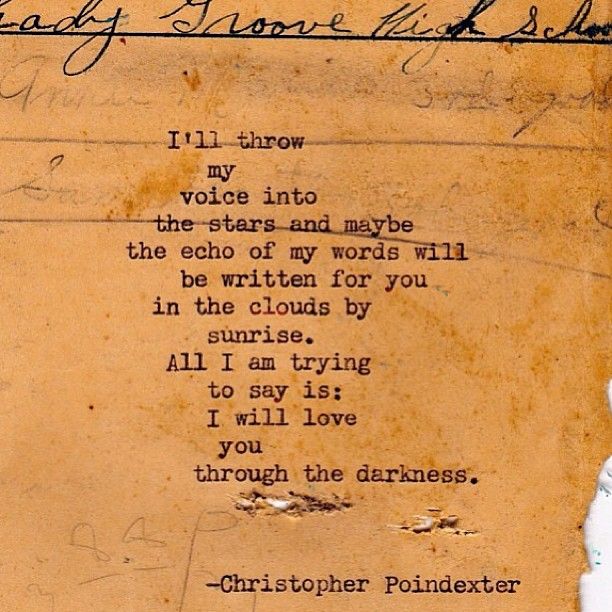 ady Groove High Schoo
I'll throw
my
voice into
the stars and maybe
the echo of my words will
be written for you
in the clouds by
sunrise.
All I am trying
to say is:
I will love
you
through the darkness.
-Christopher Poindexter